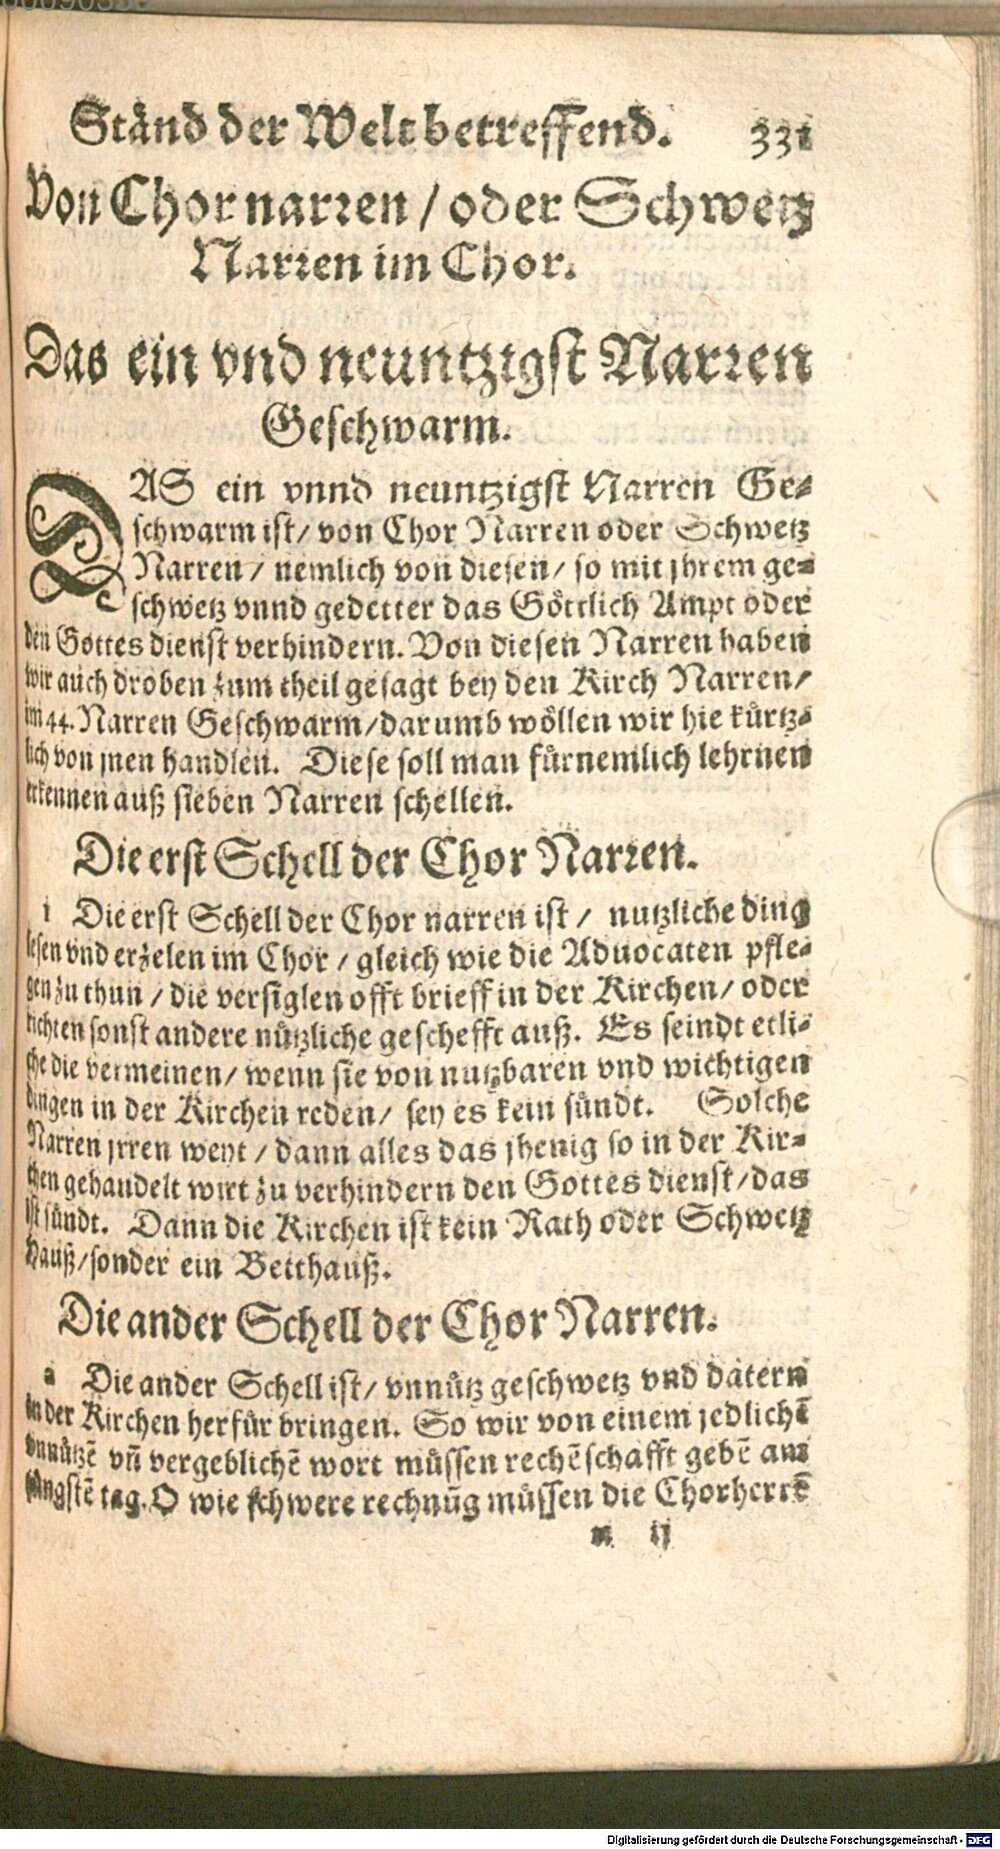 Ständ der Welt betreffend. 331
Von Chornarren / oder Schwetz
Narren im Chor.
Das ein vnd neuntzigst Narren
Geschwarm.
DAS ein vnnd neuntzigst Narren Ge-
schwarm ist / von Chor Narren oder Schwetz
Narren / nemlich von diesen / so mit jhrem ge-
schwetz vnnd gedetter das Göttlich Ampt oder
den Gottesdienst verhindern. Von diesen Narren haben
wir auch droben zum theil gesagt bey den Kirch Narren /
im 44. Narren Geschwarm / darumb wöllen wir hie kürtz-
lich von jnen handlen. Diese soll man fürnemlich lehrnen
erkennen auß sieben Narren schellen.
Die erst Schell der Chor Narren.
1 Die erst Schell der Chor narren ist / nutzliche ding
lesen vnd erzelen im Chor / gleich wie die Aduocaten pfle-
gen zu thun / die versiglen offt brieff in der Kirchen / oder
richten sonst andere nützliche geschefft auß. Es seindt etli-
che die vermeinen / wenn sie von nutzbaren vnd wichtigen
dingen in der Kirchen reden / sey es kein sündt. Solche
Narren jrren weyt / dann alles das jhenig so in der Kir-
chen gehandelt wirt zu verhindern den Gottesdienst / das
ist sündt. Dann die Kirchen ist kein Rath oder Schwetz
Hauß / sonder ein Betthauß.
Die ander Schell der Chor Narren.
2 Die ander Schell ist / vnnütz geschwetz vnd datern
in der Kirchen herfür bringen. So wir von einem jedlichē
vnnützē vñ vergeblichē wort müssen rechēschafft gebē am
jüngstē tag. O wie schwere rechnūg müssen die Chorherrē
ij
Digitalisierung gefördert durch die Deutsche Forschungsgemeinschaft - DFG